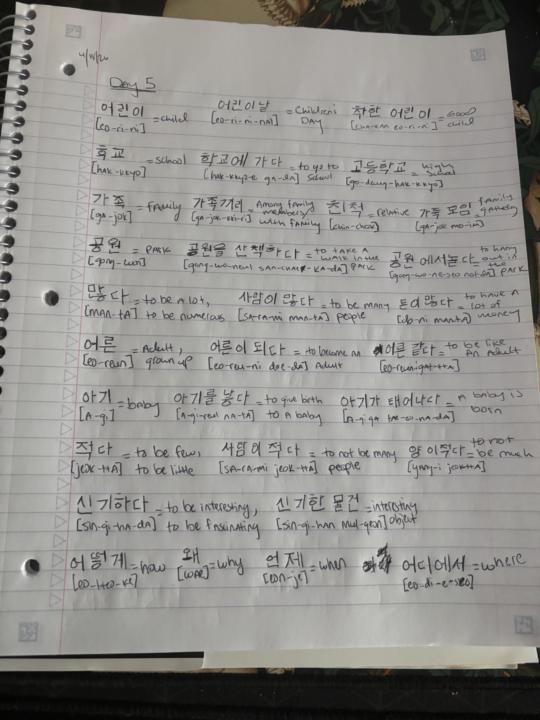 Day 5
어린이 = child 어린이날 = Children's DAY 착한 어린이 = Good child
[eo-ri-ni] [eo-ri-ni-nal] eo-ri-ni]
= school 학교에 가다 = to go to school 고등학교 = high school
[hak-kkyo] [hak-kkyo-e ga-da] [go-deung-hak-kkyo]
가족 = family 가족끼리 = Among family members, with family 친척 = relative 가족 모임 = family
[ga-jok] [ga-jok-kki-ri] [chin-cheok] [ga-jok mo-im]
공원 = PARK 공원을 산책하다 = to take a walk in the PARK 공원에서 놀다 = to hang out in the PARK
[gong-won]
많다 = to be a lot, to be numerous 사람이 많다 = to be many people 돈이 많다 = to have a lot of money
[man-ta] [sa-ra-mi man-ta] [do-ni man-ta]
어른 = Adult, grown up 어른이 되다 = to become an Adult 어른 같다 = to be like An adult
[eo-reun] [eo-reu-ni doe-da]
아기 = baby 아기를 낳다 = to give birth to a baby 아기가 태어나다 = a baby is born
[a-gi] [a-gi-reul na-ta] [a-gi-ga tae-eo-na-da]
적다 = to be few, to be little 사람이 적다 = to not be many people 양이 적다 = to not be much
[jeok-tta] [sa-ra-mi jeok-tta]
신기하다 = to be interesting, to be fascinating 신기한 물건 = interesting object
[sin-gi-ha-da] [sin-gi-han mul-geon]
어떻게 = how 왜 = why 언제 = when 어디에서 = where
[eo-tteo-ke] [wae] [eon-je] [eo-di-e-seo]